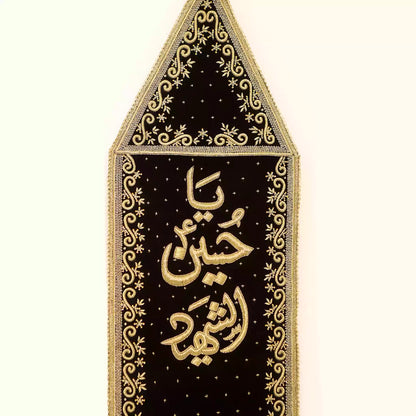 يَا
حُسين ؑ
الشهيد